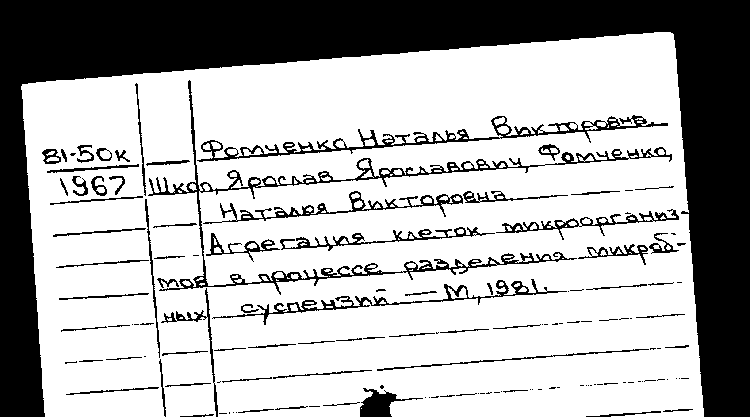 81-50к Фомченко, Наталья Викторовна.
1967 Шкоп, Ярослав Ярославович, Фомченко,
Наталья Викторовна.
Агрегация клеток микроорганиз-
мов в процессе разделения микроб-
ных суспензий. — М., 1981.